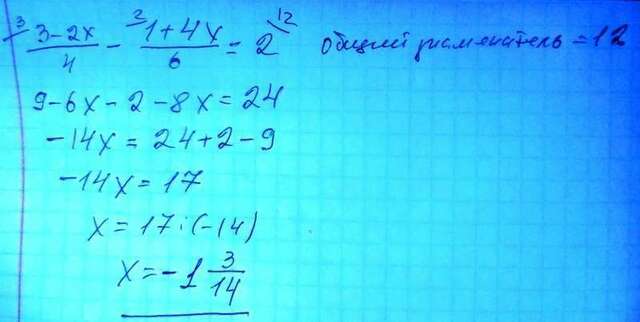 ³⁄ (3-2x)/4 - ²⁄ (1+4x)/6 = 2 \12 общий знаменатель = 12
9-6x-2-8x=24
-14x=24+2-9
-14x=17
x=17:(-14)
x=-1 3/14